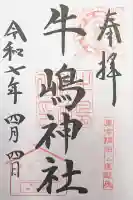 奉拝
牛嶋神社
令和七年 四月 四日